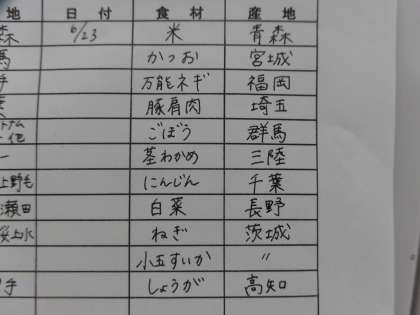 地 日付 食材 産地
森 6/23 米 青森
馬 かつお 宮城
手 万能ネギ 福岡
葉 豚肩肉 埼玉
ごぼう 群馬
茎わかめ 三陸
上野毛 にんじん 千葉
瀬田 白菜 長野
桜上水 ねぎ 茨城
小玉すいか 〃
手 しょうが 高知